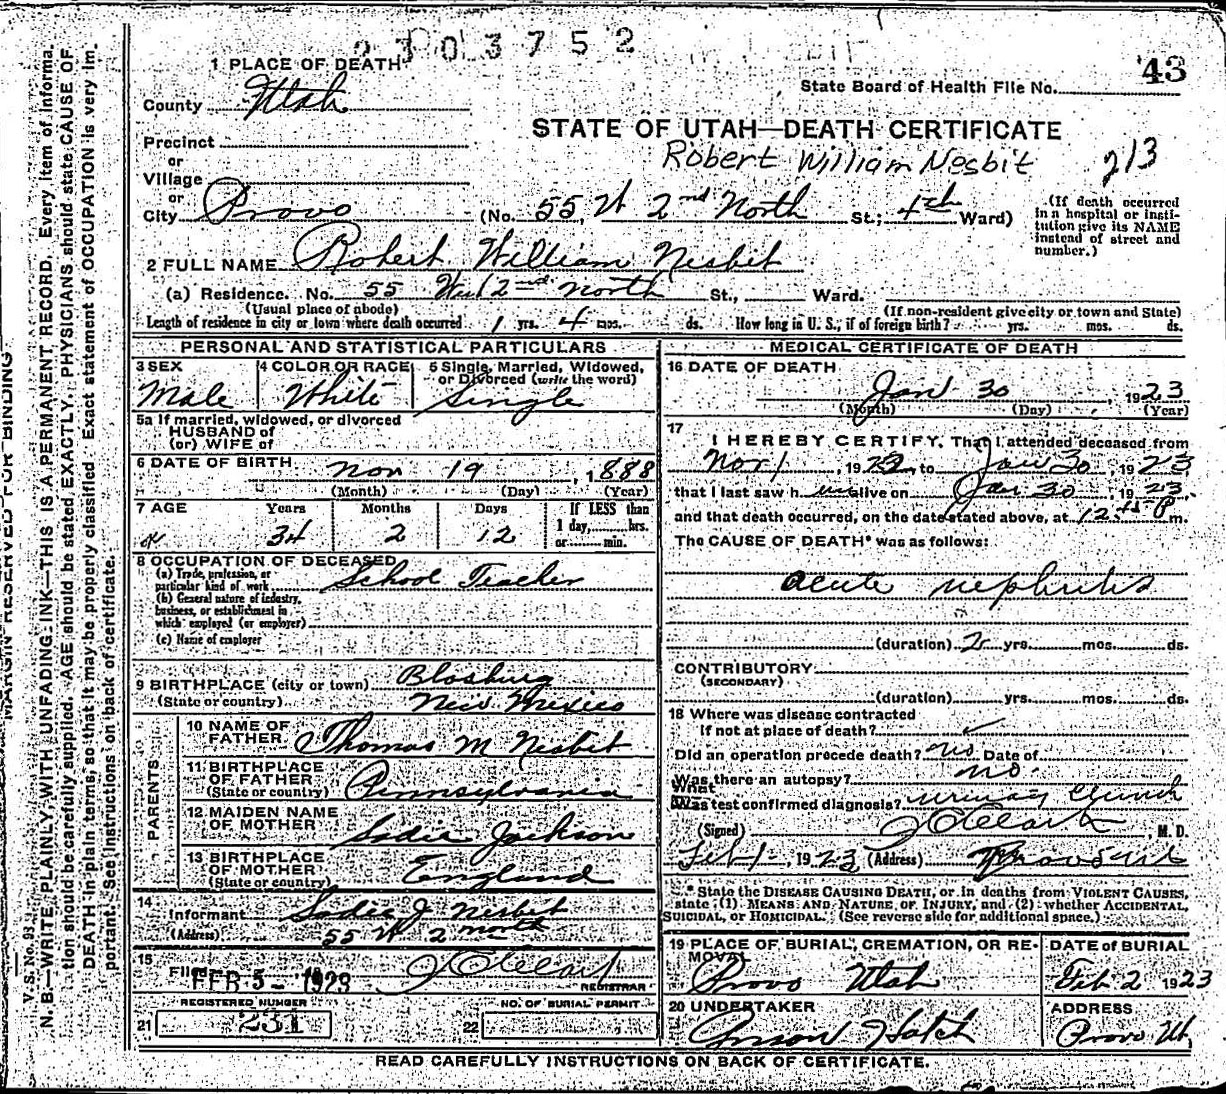 2303752
43
1 PLACE OF DEATH
State Board of Health File No.
County Utah
STATE OF UTAH—DEATH CERTIFICATE
Precinct
Robert William Nesbit
213
or
Village
or
City Provo (No. 55 W 2nd North St.; 4th Ward)
(If death occurred
in a hospital or insti-
tution give its NAME
instead of street and
number.)
2 FULL NAME Robert William Nesbit
(a) Residence. No. 55 West 2nd North St., Ward.
(Usual place of abode) (If non-resident give city or town and State)
Length of residence in city or town where death occurred 1 yrs. 4 mos. ds. How long in U. S., if of foreign birth? yrs. mos. ds.
PERSONAL AND STATISTICAL PARTICULARS
3 SEX
Male
4 COLOR OR RACE
White
5 Single, Married, Widowed,
or Divorced (write the word)
Single
5a If married, widowed, or divorced
HUSBAND of
(or) WIFE of
6 DATE OF BIRTH Nov 19, 1888
(Month) (Day) (Year)
7 AGE Years Months Days If LESS than
1 day, hrs.
or min.
34 2 12
8 OCCUPATION OF DECEASED
(a) Trade, profession, or
particular kind of work School Teacher
(b) General nature of industry,
business, or establishment in
which employed (or employer)
(c) Name of employer
9 BIRTHPLACE (city or town) Blosburg
(State or country) New Mexico
PARENTS
10 NAME OF
FATHER Thomas M Nesbit
11 BIRTHPLACE
OF FATHER
(State or country) Pennsylvania
12 MAIDEN NAME
OF MOTHER Sadie Jackson
13 BIRTHPLACE
OF MOTHER
(State or country) England
14
Informant Sadie J Nesbit
(Address) 55 W 2 North
15
Filed FEB 5 - 1923
REGISTRAR
REGISTERED NUMBER
21 231
NO. OF BURIAL PERMIT
22
MEDICAL CERTIFICATE OF DEATH
16 DATE OF DEATH
Jan 30, 1923
(Month) (Day) (Year)
17
I HEREBY CERTIFY, That I attended deceased from
Nov 1, 1922, to Jan 30, 1923
that I last saw h im alive on Jan 30, 1923,
and that death occurred, on the date stated above, at 12 45 P m.
The CAUSE OF DEATH* was as follows:
acute nephritis
(duration) 2 yrs. mos. ds.
CONTRIBUTORY
(SECONDARY)
(duration) yrs. mos. ds.
18 Where was disease contracted
If not at place of death?
Did an operation precede death? no Date of
Was there an autopsy? no.
What
Was test confirmed diagnosis? urinary
(Signed) , M. D.
Feb 1, 1923 (Address) Provo Utah
* State the DISEASE CAUSING DEATH, or in deaths from VIOLENT CAUSES,
state (1) MEANS AND NATURE OF INJURY, and (2) whether ACCIDENTAL,
SUICIDAL, or HOMICIDAL. (See reverse side for additional space.)
19 PLACE OF BURIAL, CREMATION, OR RE-
MOVAL
Provo Utah
DATE of BURIAL
Feb 2 1923
20 UNDERTAKER
Anson Hatch
ADDRESS
Provo Ut.
READ CAREFULLY INSTRUCTIONS ON BACK OF CERTIFICATE.
MARGIN RESERVED FOR BINDING
V. S. No. 93
N. B.—WRITE PLAINLY, WITH UNFADING INK—THIS IS A PERMANENT RECORD. Every item of informa-
tion should be carefully supplied. AGE should be stated EXACTLY. PHYSICIANS should state CAUSE OF
DEATH in plain terms, so that it may be properly classified. Exact statement of OCCUPATION is very im-
portant. See instructions on back of certificate.